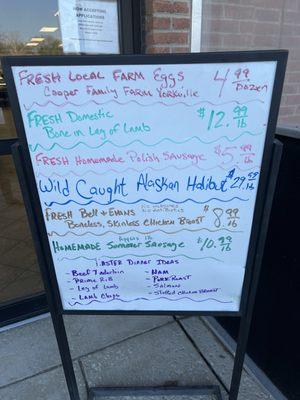 NOW ACCEPTING
APPLICATIONS
FRESH LOCAL FARM Eggs 4.99
Cooper Family Farm Yorkville Dozen
FRESH Domestic $12.99
Bone in Leg of Lamb lb
FRESH Homemade Polish Sausage $5.99 lb
Wild Caught Alaskan Halibut $29.99 lb
No Antibiotics
FRESH Bell + Evans $8.99
Boneless, Skinless Chicken Breast lb
HOMEMADE Summer Sausage $10.99 lb
EASTER Dinner Ideas
- Beef Tenderloin - Ham
- Prime Rib - Pork Roast
- Leg of Lamb - Salmon
- Lamb Chops - Stuffed Chicken Breast